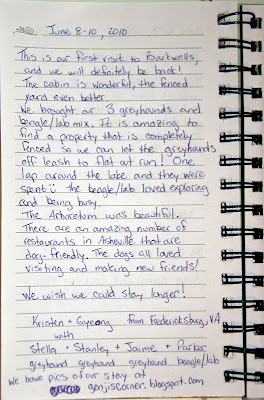 June 8-10, 2010
This is our first visit to Barkwells,
and we will definitely be back!
The cabin is wonderful, the fenced
yard even better.
We brought our 3 greyhounds and
beagle/lab mix. It is amazing to
find a property that is completely
fenced so we can let the greyhounds
off leash to flat out run! One
lap around the lake and they were
spent the beagle/lab loved exploring
and being busy.
The Arboretum was beautiful.
There are an amazing number of
restaurants in Asheville that are
dog-friendly. The dogs all loved
visiting and making new friends!
We wish we could stay longer!
Kristen + Gyeong from Fredericksburg, VA
with
Stella + Stanley + Jaime + Parker
greyhound greyhound greyhound beagle/lab
We have pics of our stay at
genjiscorner.blogspot.com